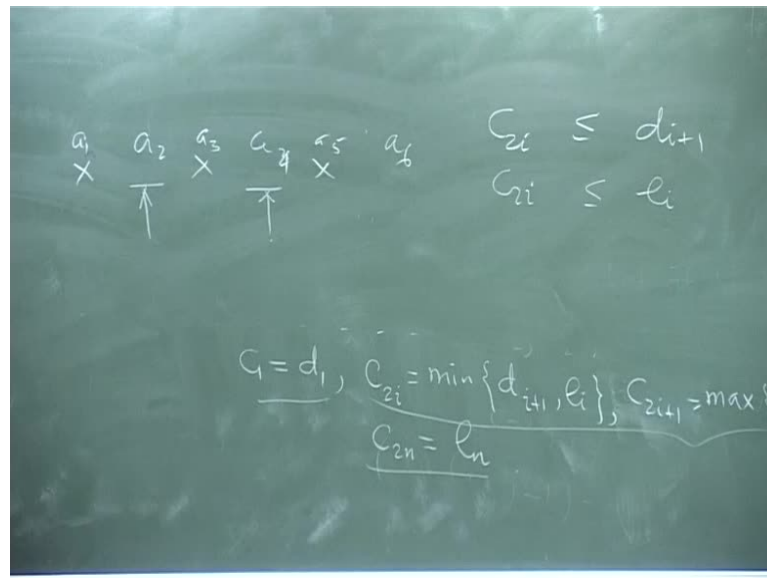 a₁ a₂ a₃ a₄ a₅ a₆ C₂ᵢ ≤ dᵢ₊₁
× × × C₂ᵢ ≤ eᵢ
C₁ = d₁, C₂ᵢ = min{dᵢ₊₁, eᵢ}, C₂ᵢ₊₁ = max{
C₂ₙ = eₙ